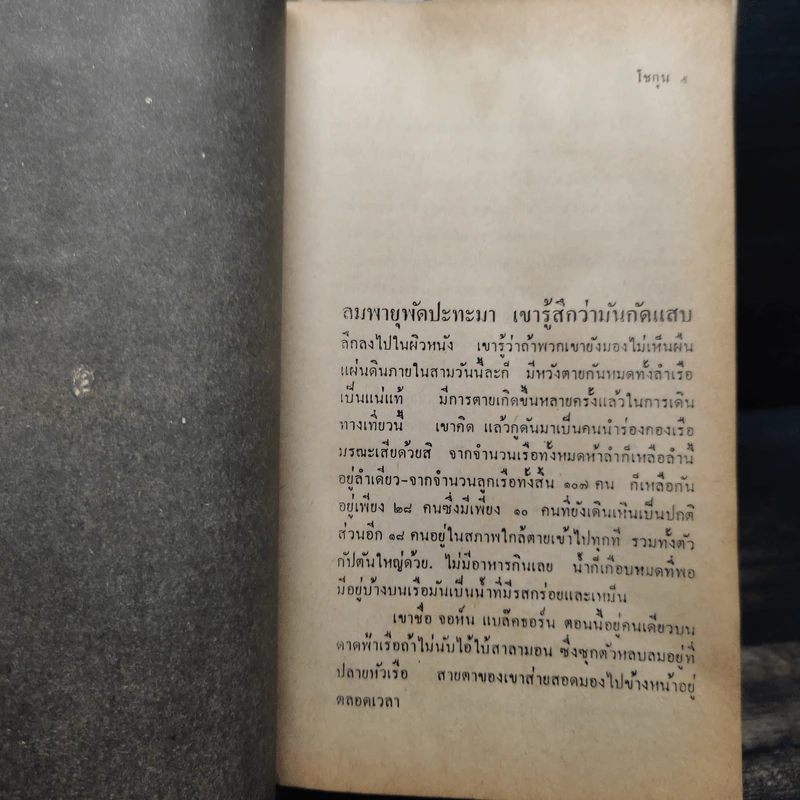 โชกุน ๕
ลมพายุพัดปะทะมา เขารู้สึกว่ามันกัดแสบ
ลึกลงไปในผิวหนัง เขารู้ว่าถ้าพวกเขายังมองไม่เห็นผืน
แผ่นดินภายในสามวันนี้ละก็ มีหวังตายกันหมดทั้งลำเรือ
เป็นแน่แท้ มีการตายเกิดขึ้นหลายครั้งแล้วในการเดิน
ทางเที่ยวนี้ เขาคิด แล้วกูดันมาเป็นคนนำร่องกองเรือ
มรณะเสียด้วยสิ จากจำนวนเรือทั้งหมดห้าลำก็เหลือลำนี้
อยู่ลำเดียว-จากจำนวนลูกเรือทั้งสิ้น ๑๐๗ คน ก็เหลือกัน
อยู่เพียง ๒๘ คนซึ่งมีเพียง ๑๐ คนที่ยังเดินเหินเป็นปกติ
ส่วนอีก ๑๘ คนอยู่ในสภาพใกล้ตายเข้าไปทุกที รวมทั้งตัว
กัปตันใหญ่ด้วย. ไม่มีอาหารกินเลย น้ำก็เกือบหมดที่พอ
มีอยู่บ้างบนเรือมันเป็นน้ำที่มีรสกร่อยและเหม็น
เขาชื่อ จอห์น แบล๊คธอร์น ตอนนี้อยู่คนเดียวบน
ดาดฟ้าเรือถ้าไม่นับไอ้ใบ้สาลามอน ซึ่งซุกตัวหลบลมอยู่ที่
ปลายหัวเรือ สายตาของเขาส่ายสอดมองไปข้างหน้าอยู่
ตลอดเวลา